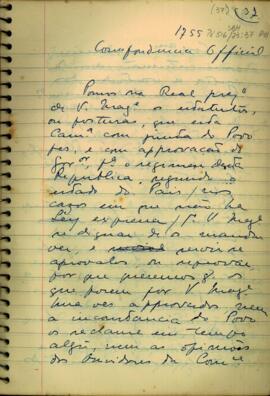 (37) 37
1755
Correspondencia Official
Pomos na Real prez.ª
de V. Mag.e os estatutos,
ou posturas, que esta
Cam.ª com junta do Povo
fes, e com approvação do
Gov.or, p.ª o regimen desta
Republica, segundo o
estado do Paiz/nos
casos em que não ha
Ley expressa/P.ª V. Mag.e
se dignar de os mandar
ver, e
approvalos ou reprovar
por que queremos q. os
que forem por V. Mag.e
hua ves approvados nem
a inconstancia do Povo
os reclame em tempo
algũ, nem as opinioens
dos Ouvidores da Com.ca